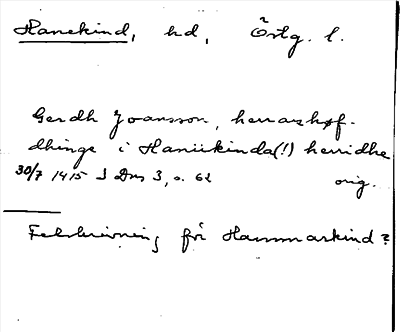 Hanekind, hd, Östg. l.
Gerdh Joansson, herrashøf-
dhinge i Haniikinda(!) herridhe
30/7 1415 J Dns 3, s. 62 orig.
Felskrivning för Hammarkind?